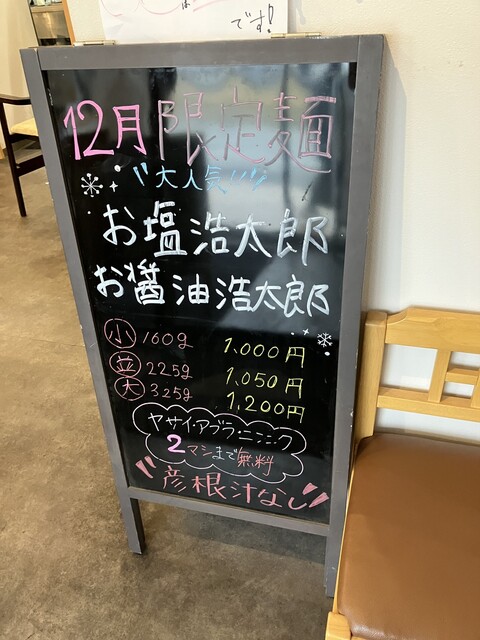 です!
12月限定麺
大人気!!
お塩浩太郎
お醤油浩太郎
小 160g 1,000円
並 225g 1,050円
大 325g 1,200円
ヤサイ・アブラ・ニンニク
2マシまで無料
彦根汁なし